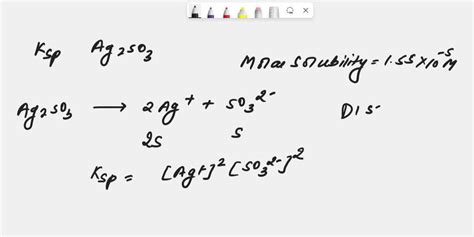 Ksp Ag2SO3
Molar solubility = 1.55 × 10⁻⁵ M
Ag2SO3 → 2Ag⁺ + SO3²⁻
2S S
DIS
Ksp = [Ag+]² [SO3²⁻]²